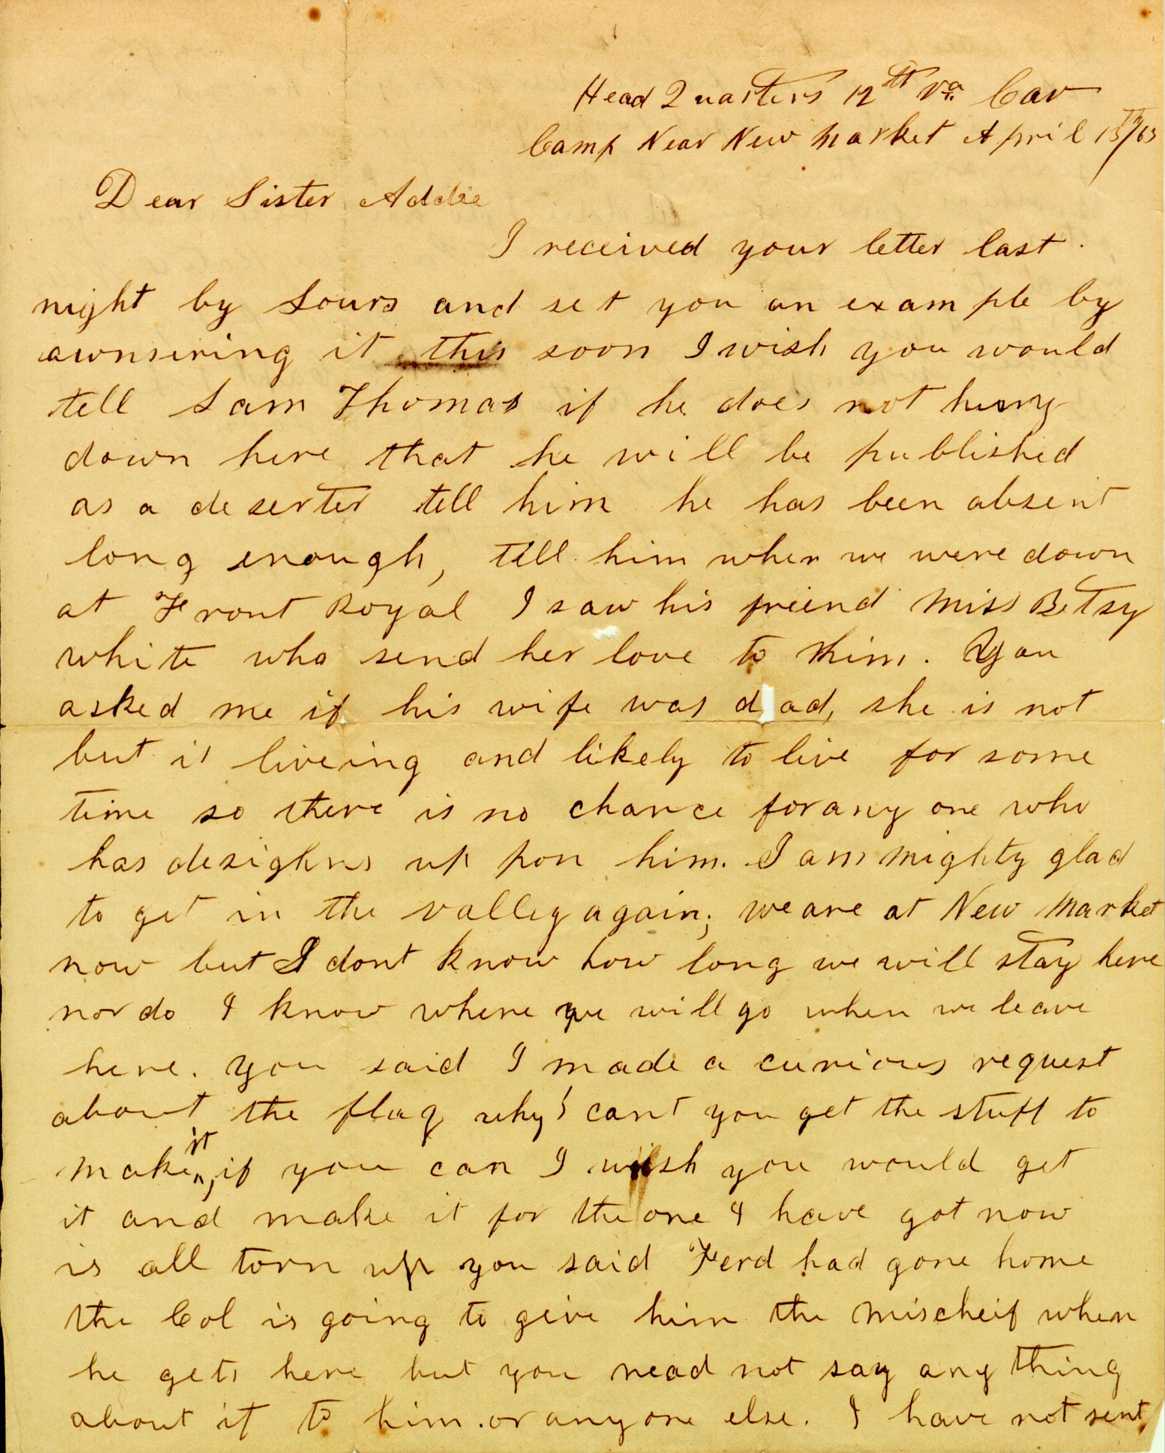 Head Quarters 12th Va. Cav
Camp Near New Market April 15th/63
Dear Sister Addie
I received your letter last
night by Sours and set you an example by
awnsering it this soon I wish you would
tell Sam Thomas if he does not hurry
down here that he will be published
as a deserter tell him he has been absent
long enough, tell him when we were down
at Front Royal I saw his friend Miss Betsy
white who send her love to him. You
asked me if his wife was d ad, she is not
but is liveing and likely to live for some
time so there is no chance for any one who
has desighns up pon him. I am mighty glad
to get in the valley again; we are at New Market
now but I dont know how long we will stay here
nor do I know where we will go when we leave
here. you said I made a curious request
about the flag why! cant you get the stuff to
make it, if you can I wish you would get
it and make it for the one I have got now
is all torn up you said Ferd had gone home
the Col is going to give him the mischeif when
he gets here but you nead not say any thing
about it to him. or any one else. I have not sent